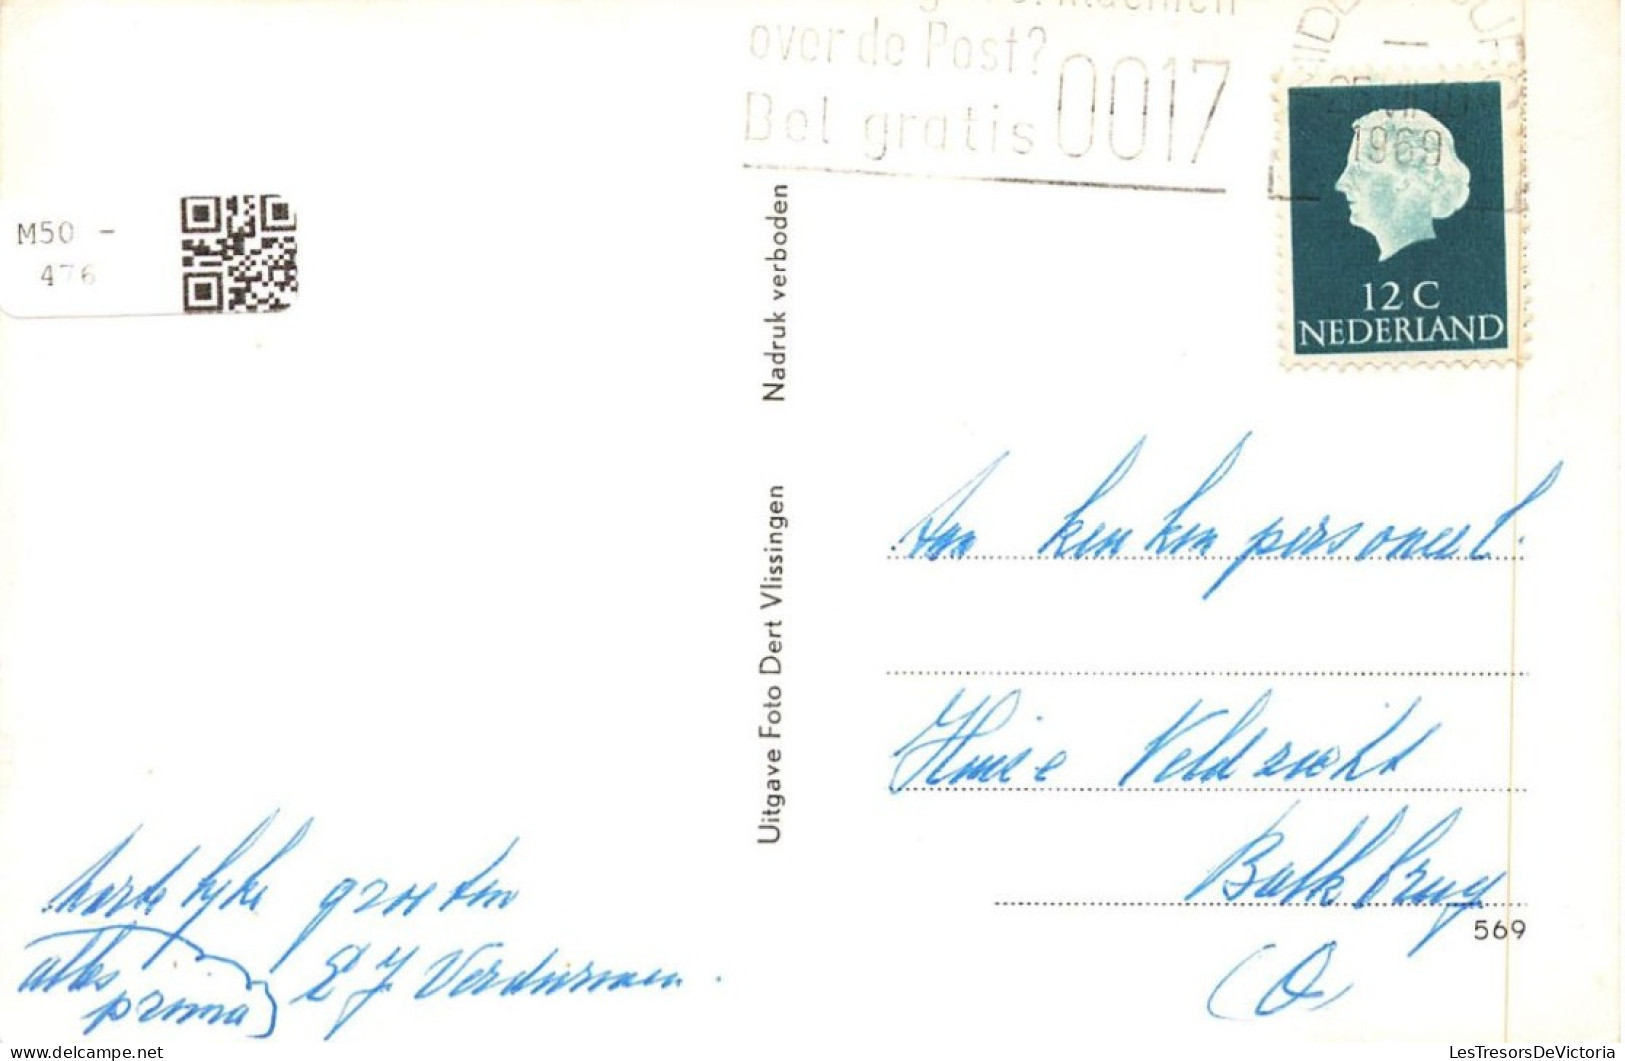 over de Post?
Bel gratis 0017
1969
12 C
NEDERLAND
M50 -
476
Nadruk verboden
Uitgave Foto Dert Vlissingen
Aan keuken personeel.
Huize Veldzicht
Balkbrug
569
(O)
hartelijke groeten
alles prima
E J Verduinmen.
LesTresorsDeVictoria